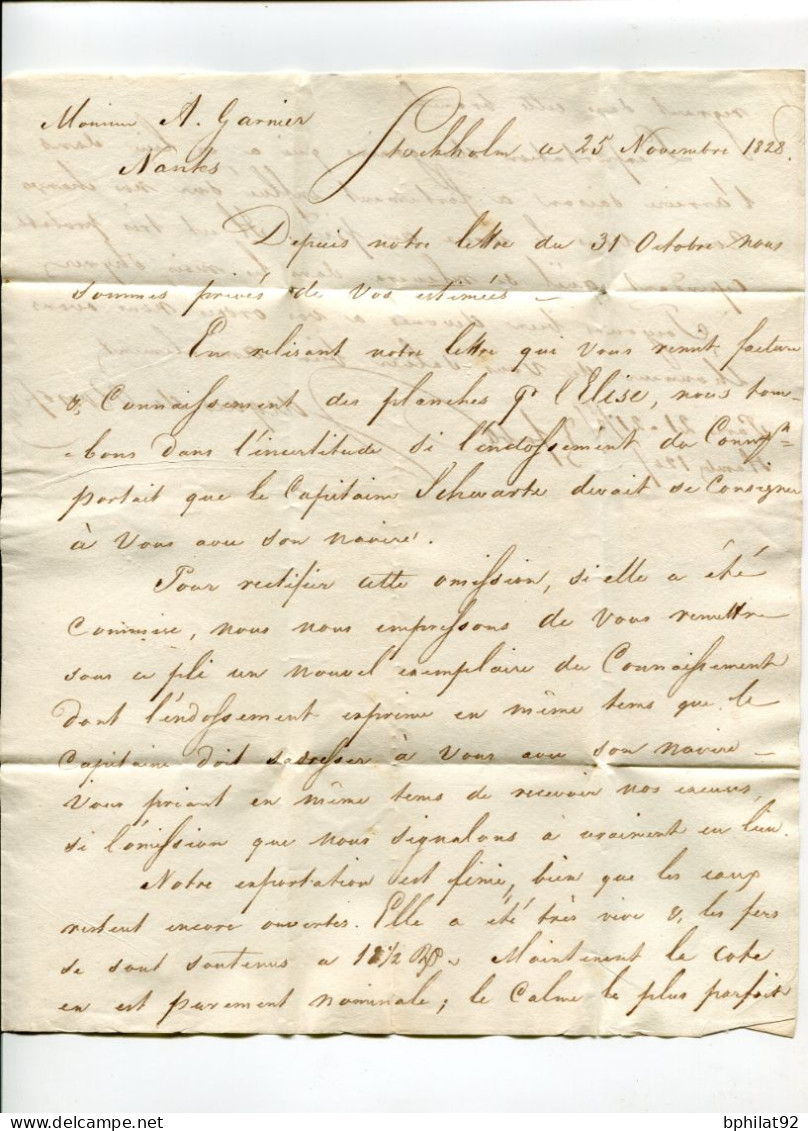 Monsieur A. Garnier
Nantes
Stockholm ce 25 Novembre 1828.
Depuis notre lettre du 31 Octobre nous
sommes privés de vos estimées.
En relisant notre lettre que vous remit facture
& Connaissement des planches pr l'Elise, nous tom-
-bons dans l'incertitude si l'endossement du Connaisst
portait que le Capitaine Schwartz devait se Consigner
à Vous avec son navire.
Pour rectifier cette omission, si elle a été
Commise, nous nous empressons de Vous remettre
sous ce pli un nouvel exemplaire du Connaissement
dont l'endossement exprime en même tems que le
Capitaine doit sadresser à Vous avec son navire –
Vous priant en même tems de recevoir nos excuses,
si l'omission que nous signalons a vraiment eu lieu.
Notre exportation est finie, bien que les eaux
restent encore ouvertes. Elle a été très vive & les fers
se sont soutenus a Maintenent la cote
en est purement nominale; le Calme le plus parfait
bphilat92